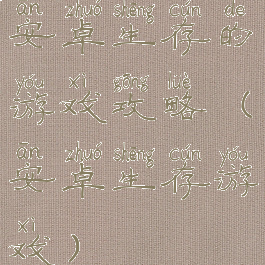 ān zhuó shēng cún de
安卓生存的
yóu xì gōng lüè
游戏攻略（
ān zhuó shēng cún yóu
安卓生存游
xì
戏）